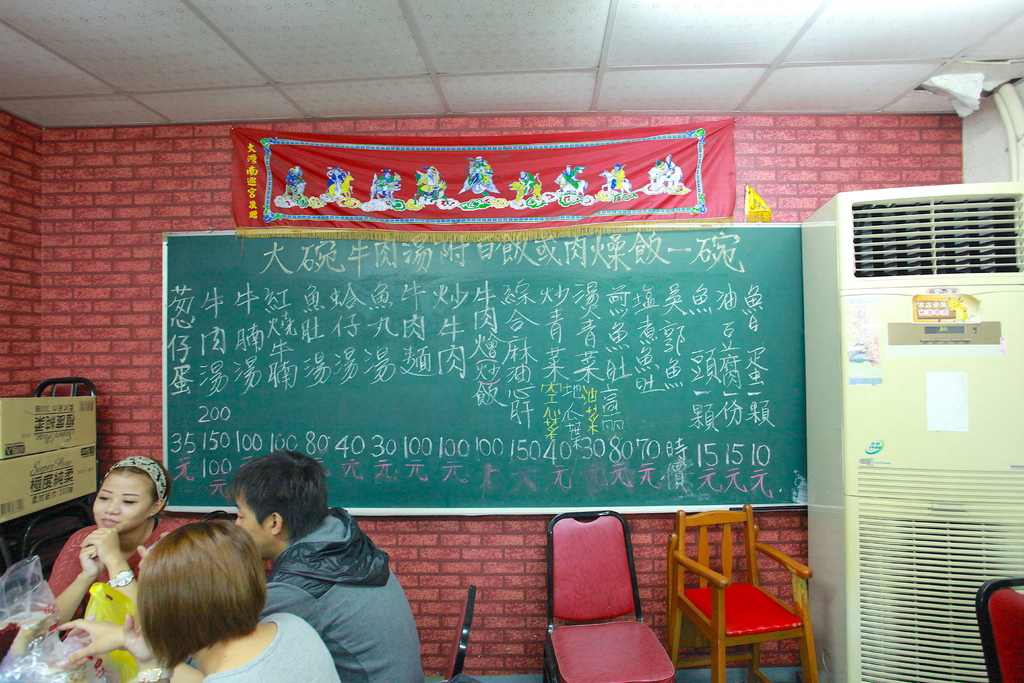 大灣南巡宮
大碗牛肉湯附白飯或肉燥飯一碗
葱仔蛋 35元
牛肉湯 200 150 100元
牛腩湯 100
紅燒牛腩 100
魚肚湯 80元
蛤仔湯 40元
魚丸湯 30元
牛肉麵 100元
炒牛肉 100元
牛肉燴(炒)飯 100
綜合麻油心肝 150
炒青菜 空心菜 地瓜葉 40元
燙青菜 油菜 高麗 30
煎魚肚 80元
塩煮魚肚 70元
吳郭魚 時價
魚頭一顆 15元
油豆腐一份 15元
魯蛋一顆 10元
極度純柔
極度純柔